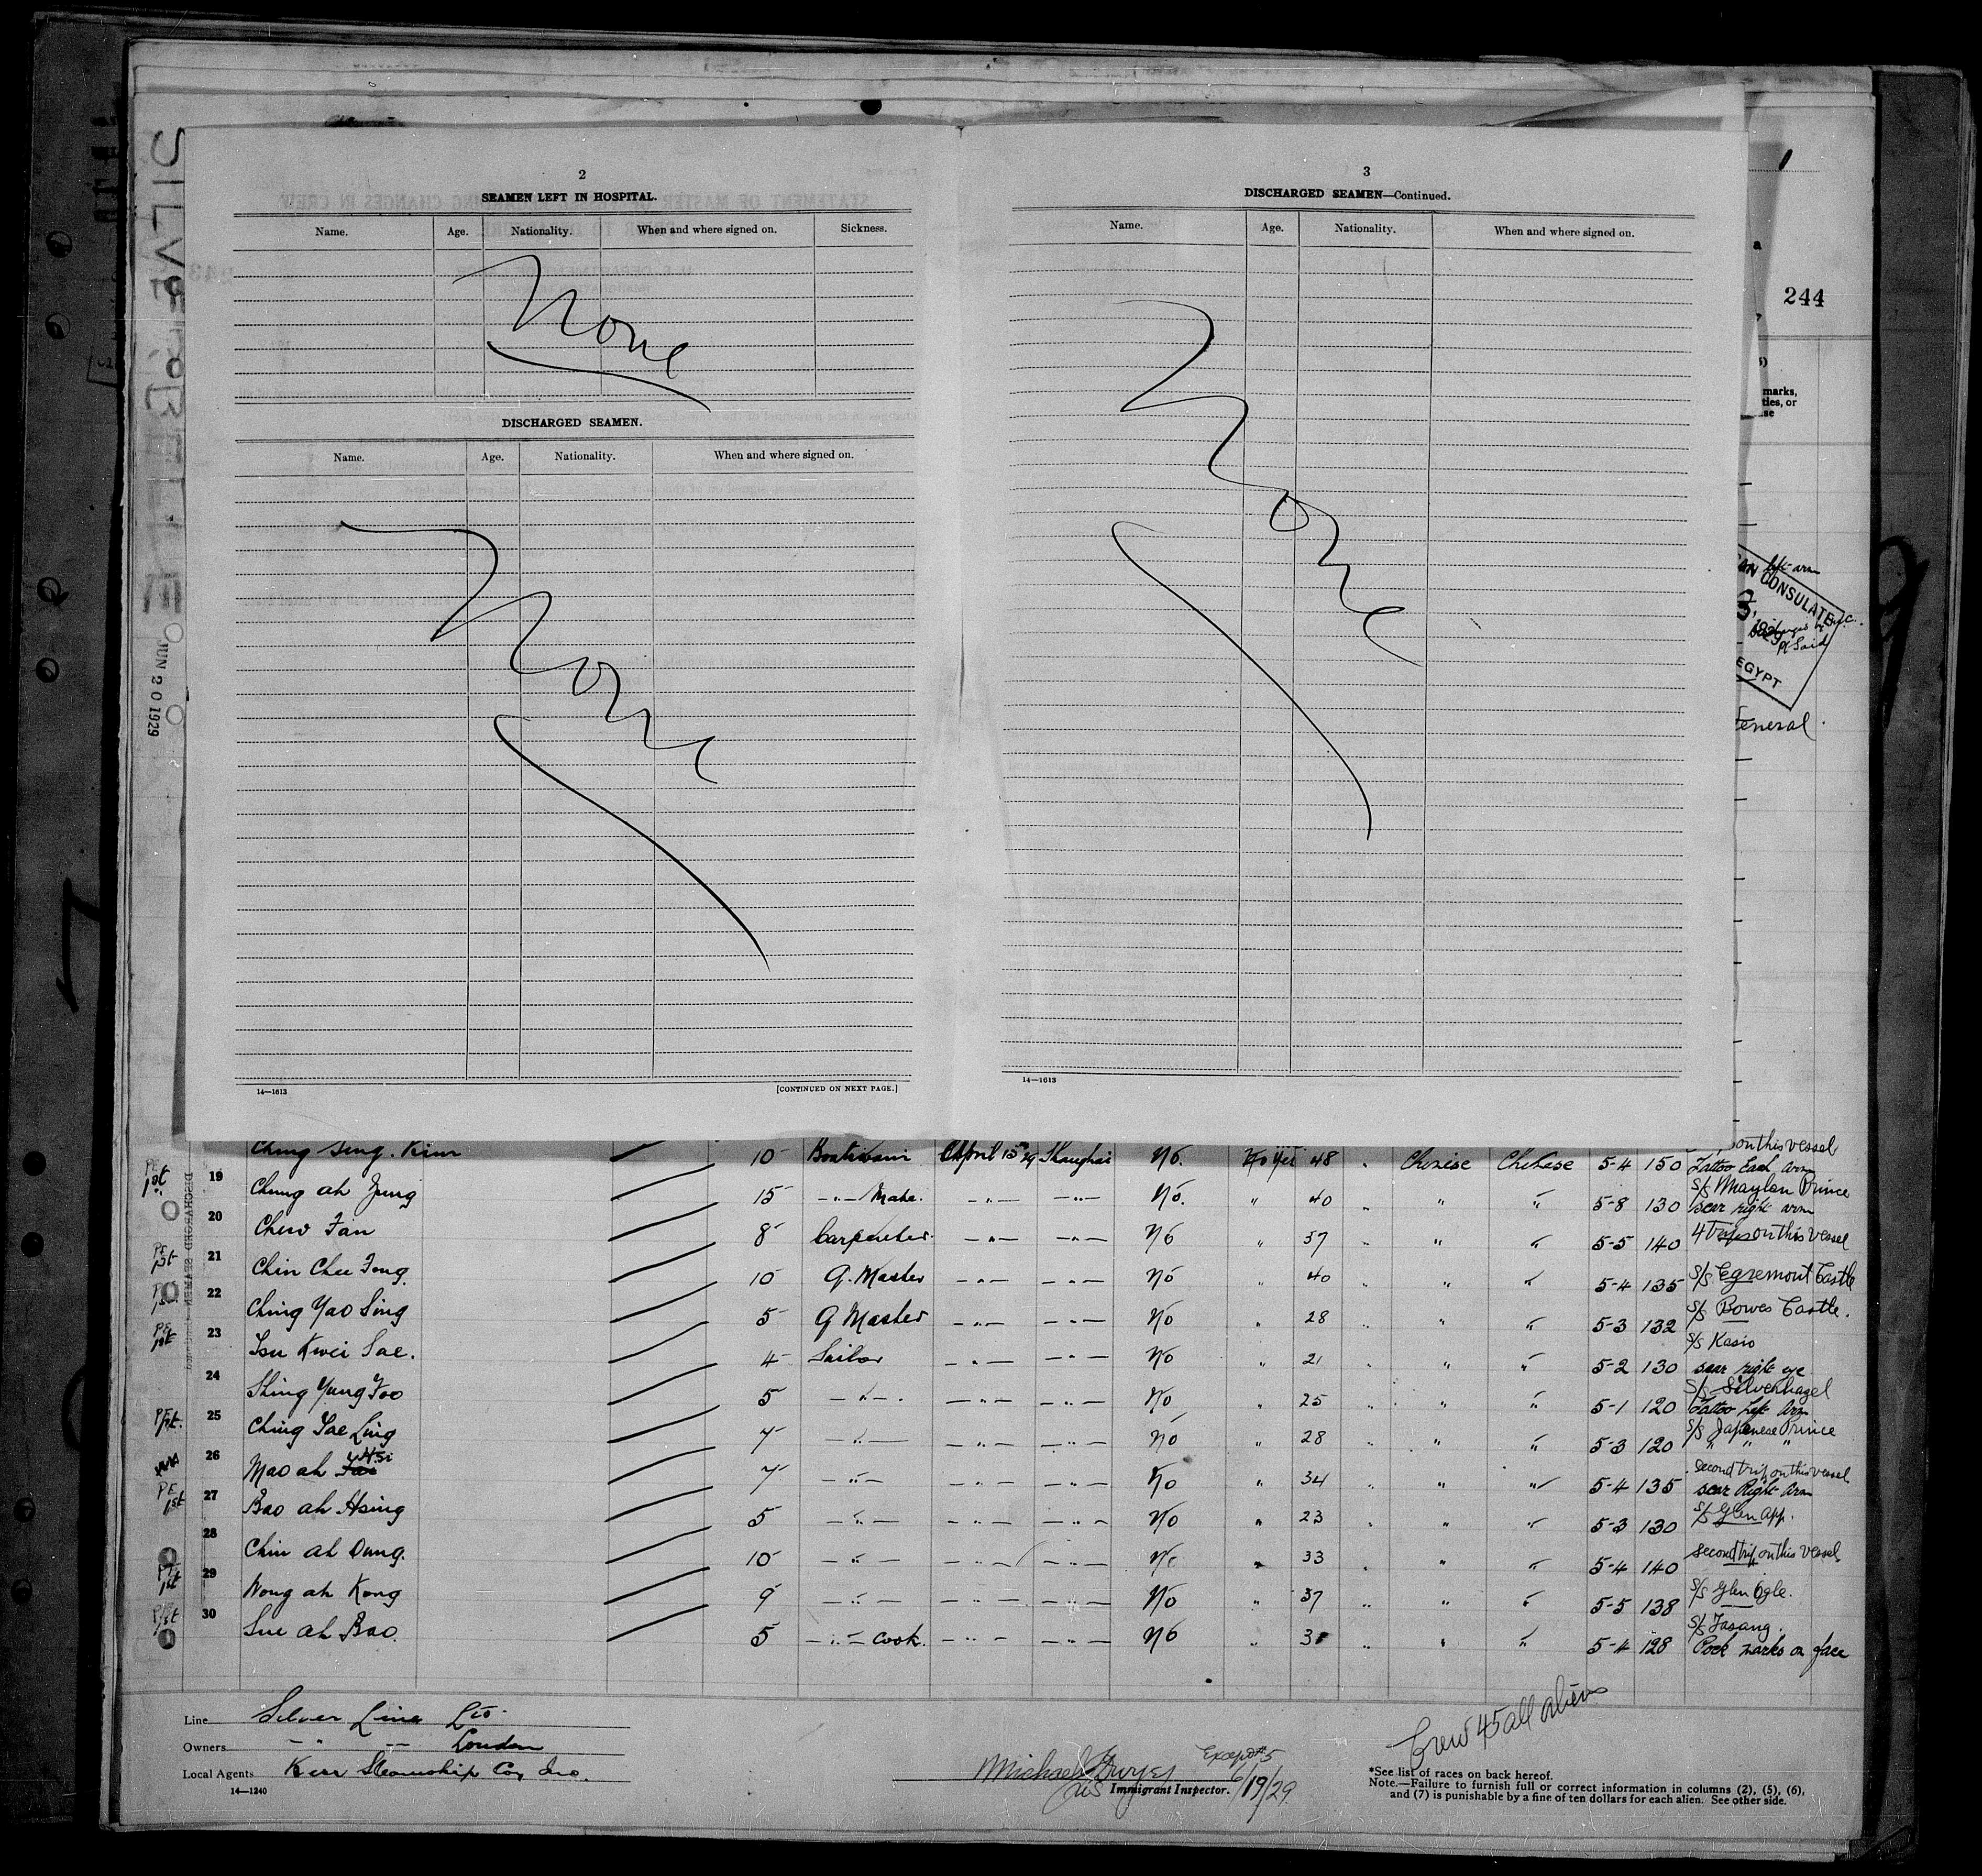 SILVERBELLE
JUN 20 1929
2
SEAMEN LEFT IN HOSPITAL.
Name. Age. Nationality. When and where signed on. Sickness.
None
DISCHARGED SEAMEN.
Name. Age. Nationality. When and where signed on.
None
14—1613 [CONTINUED ON NEXT PAGE.]
3
DISCHARGED SEAMEN—Continued.
Name. Age. Nationality. When and where signed on.
None
14—1613
244
marks,
ties, or
se
left arm
AN CONSULATE
1929
Pt Said
EGYPT
General
Ching Sing Kim 10 Boatswain April 15 29 Shanghai No. No Yes 48 " Chinese Chinese 5-4 150 on this vessel
Tattoo Each Arm
1st 19 Chung ah Jung 15 -"- Mate. -"- -"- No. " 40 " " " 5-8 130 S/S Maylan Prince
scar right arm
20 Chew Fan 8 Carpenter. -"- -"- No " 37 " " " 5-5 140 4 Trips on this vessel
PE 1st 21 Chin Chee Fong 10 Q. Master -"- -"- No " 40 " " " 5-4 135 S/S Egremont Castle
1st 22 Ching Yao Sing 5 Q Master -"- -"- No " 28 " " " 5-3 132 S/S Bowes Castle.
PE 1st 23 Tsu Kwei Sae. 4 Sailor -"- -"- No " 21 " " " 5-2 130 S/S Kasio
scar right eye
24 Shing Yung Foo 5 -"- -"- -"- No " 25 " " " 5-1 120 S/S Silverhazel
Tattoo Left Arm
PE 1st. 25 Ching Sae Ling 7 -"- -"- -"- No " 28 " " " 5-3 120 S/S Japanese Prince
" " "
26 Mao ah Hsi 7 -"- -"- -"- No " 34 " " " 5-4 135 second trip on this vessel
scar Right Arm
PE 1st 27 Bao ah Hsing 5 -"- -"- -"- No " 23 " " " 5-3 130 S/S Glen app.
28 Chin ah Dung. 10 -"- -"- -"- No " 33 " " " 5-4 140 second trip on this vessel
1st 29 Wong ah Kong 9 -"- -"- -"- No " 37 " " " 5-5 138 S/S Glen Ogle.
1st 30 Sue ah Bao. 5 -"- cook. -"- -"- No " " " " 5-4 128 S/S Fasang.
Pock marks on face
DISCHARGED SEAMEN
Line Silver Line Ltd.
Owners -"- London
Local Agents Kerr Steamship Co, Inc.
14—1240
Michael Dwyer Except #5
Immigrant Inspector. 6/19/29
Crew 45 all aliens
*See list of races on back hereof.
Note.—Failure to furnish full or correct information in columns (2), (5), (6),
and (7) is punishable by a fine of ten dollars for each alien. See other side.